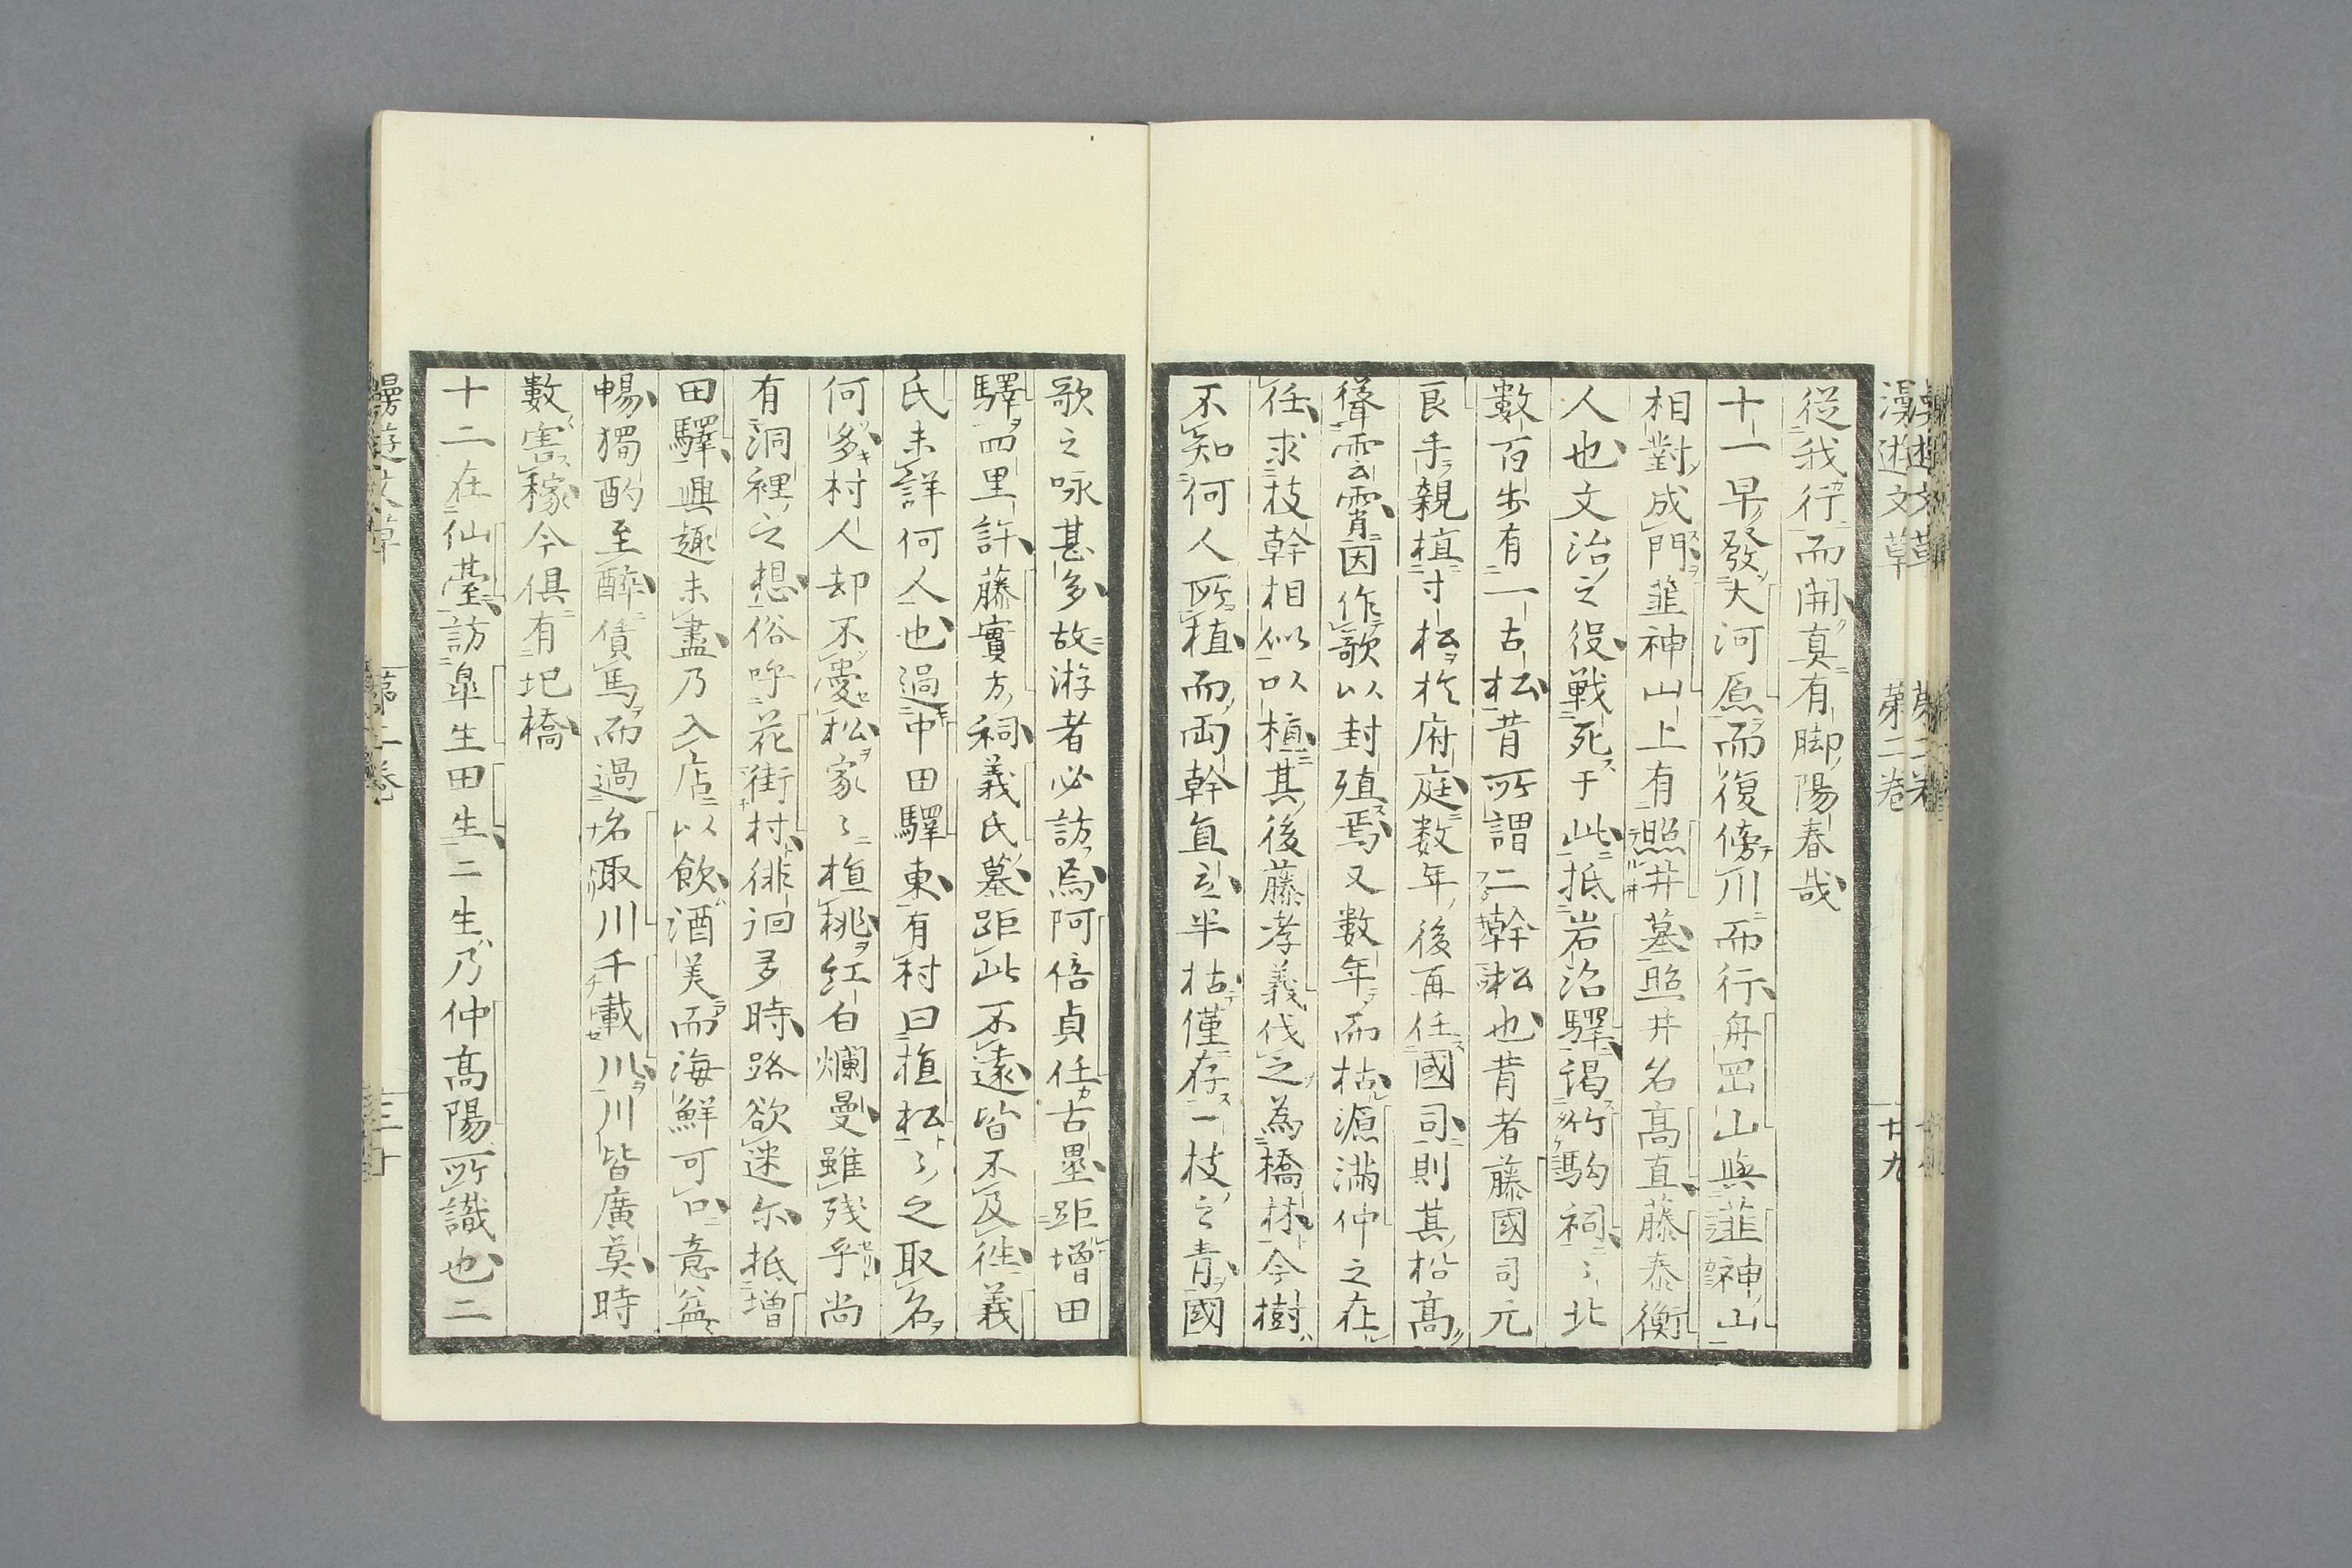 漫遊文草 第二卷 廿九
從我行而開真有脚陽春哉
十一早發大河原而復傍川而行舟罡山與韮神山
相對成門韮神山上有照井墓照井名高直藤泰衡
人也文治之役戰死于此抵岩沼驛謁竹駒祠〻北
數百步有一古松昔所謂二幹松也昔者藤國司元
良手親植寸松於府庭数年後再任國司則其松高
聳雲霄因作歌以封殖焉又数年而枯源滿仲之在
任求枝幹相似以植其後藤孝義伐之為橋材今樹
不知何人所植而兩幹直立半枯僅存一枝之青國
歌之咏甚多故游者必訪焉阿倍貞任古墨距增田
驛四里許藤實方祠義氏墓距此不遠皆不及徃義
氏未詳何人也過中田驛東有村曰植松〻之取名
何多村人却不愛松家〻植桃紅白爛熳雖殘乎尚
有洞裡之想俗呼花街村徘徊多時路欲迷尓抵增
田驛興趣未盡乃入店以飲酒美而海鮮可口意益
暢獨酌至醉僨馬而過名取川千載川川皆廣莫時
數害稼今俱有圯橋
十二在仙臺訪皐生田生二生乃仲髙陽所識也二
漫遊文草 第二卷 三十